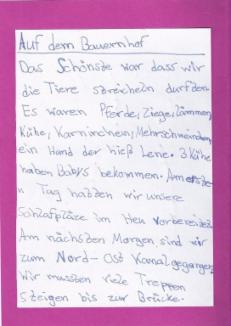 Auf dem Bauernhof
Das Schönste war dass wir
die Tiere streicheln durften
Es waren Pferde, Ziege, Lämmer,
Kühe, Karninchein, Mehrschweinchen
ein Hund der hieß Lene. 3 Kühe
haben Babys bekommen. Am ersten
Tag habten wir unsere
Schlafplätze im Heu vorbereitet
Am nächsten Morgen sind wir
zum Nord-Ost Kanal gegangen
Wir mussten viele Treppen
steigen bis zur Brücke.